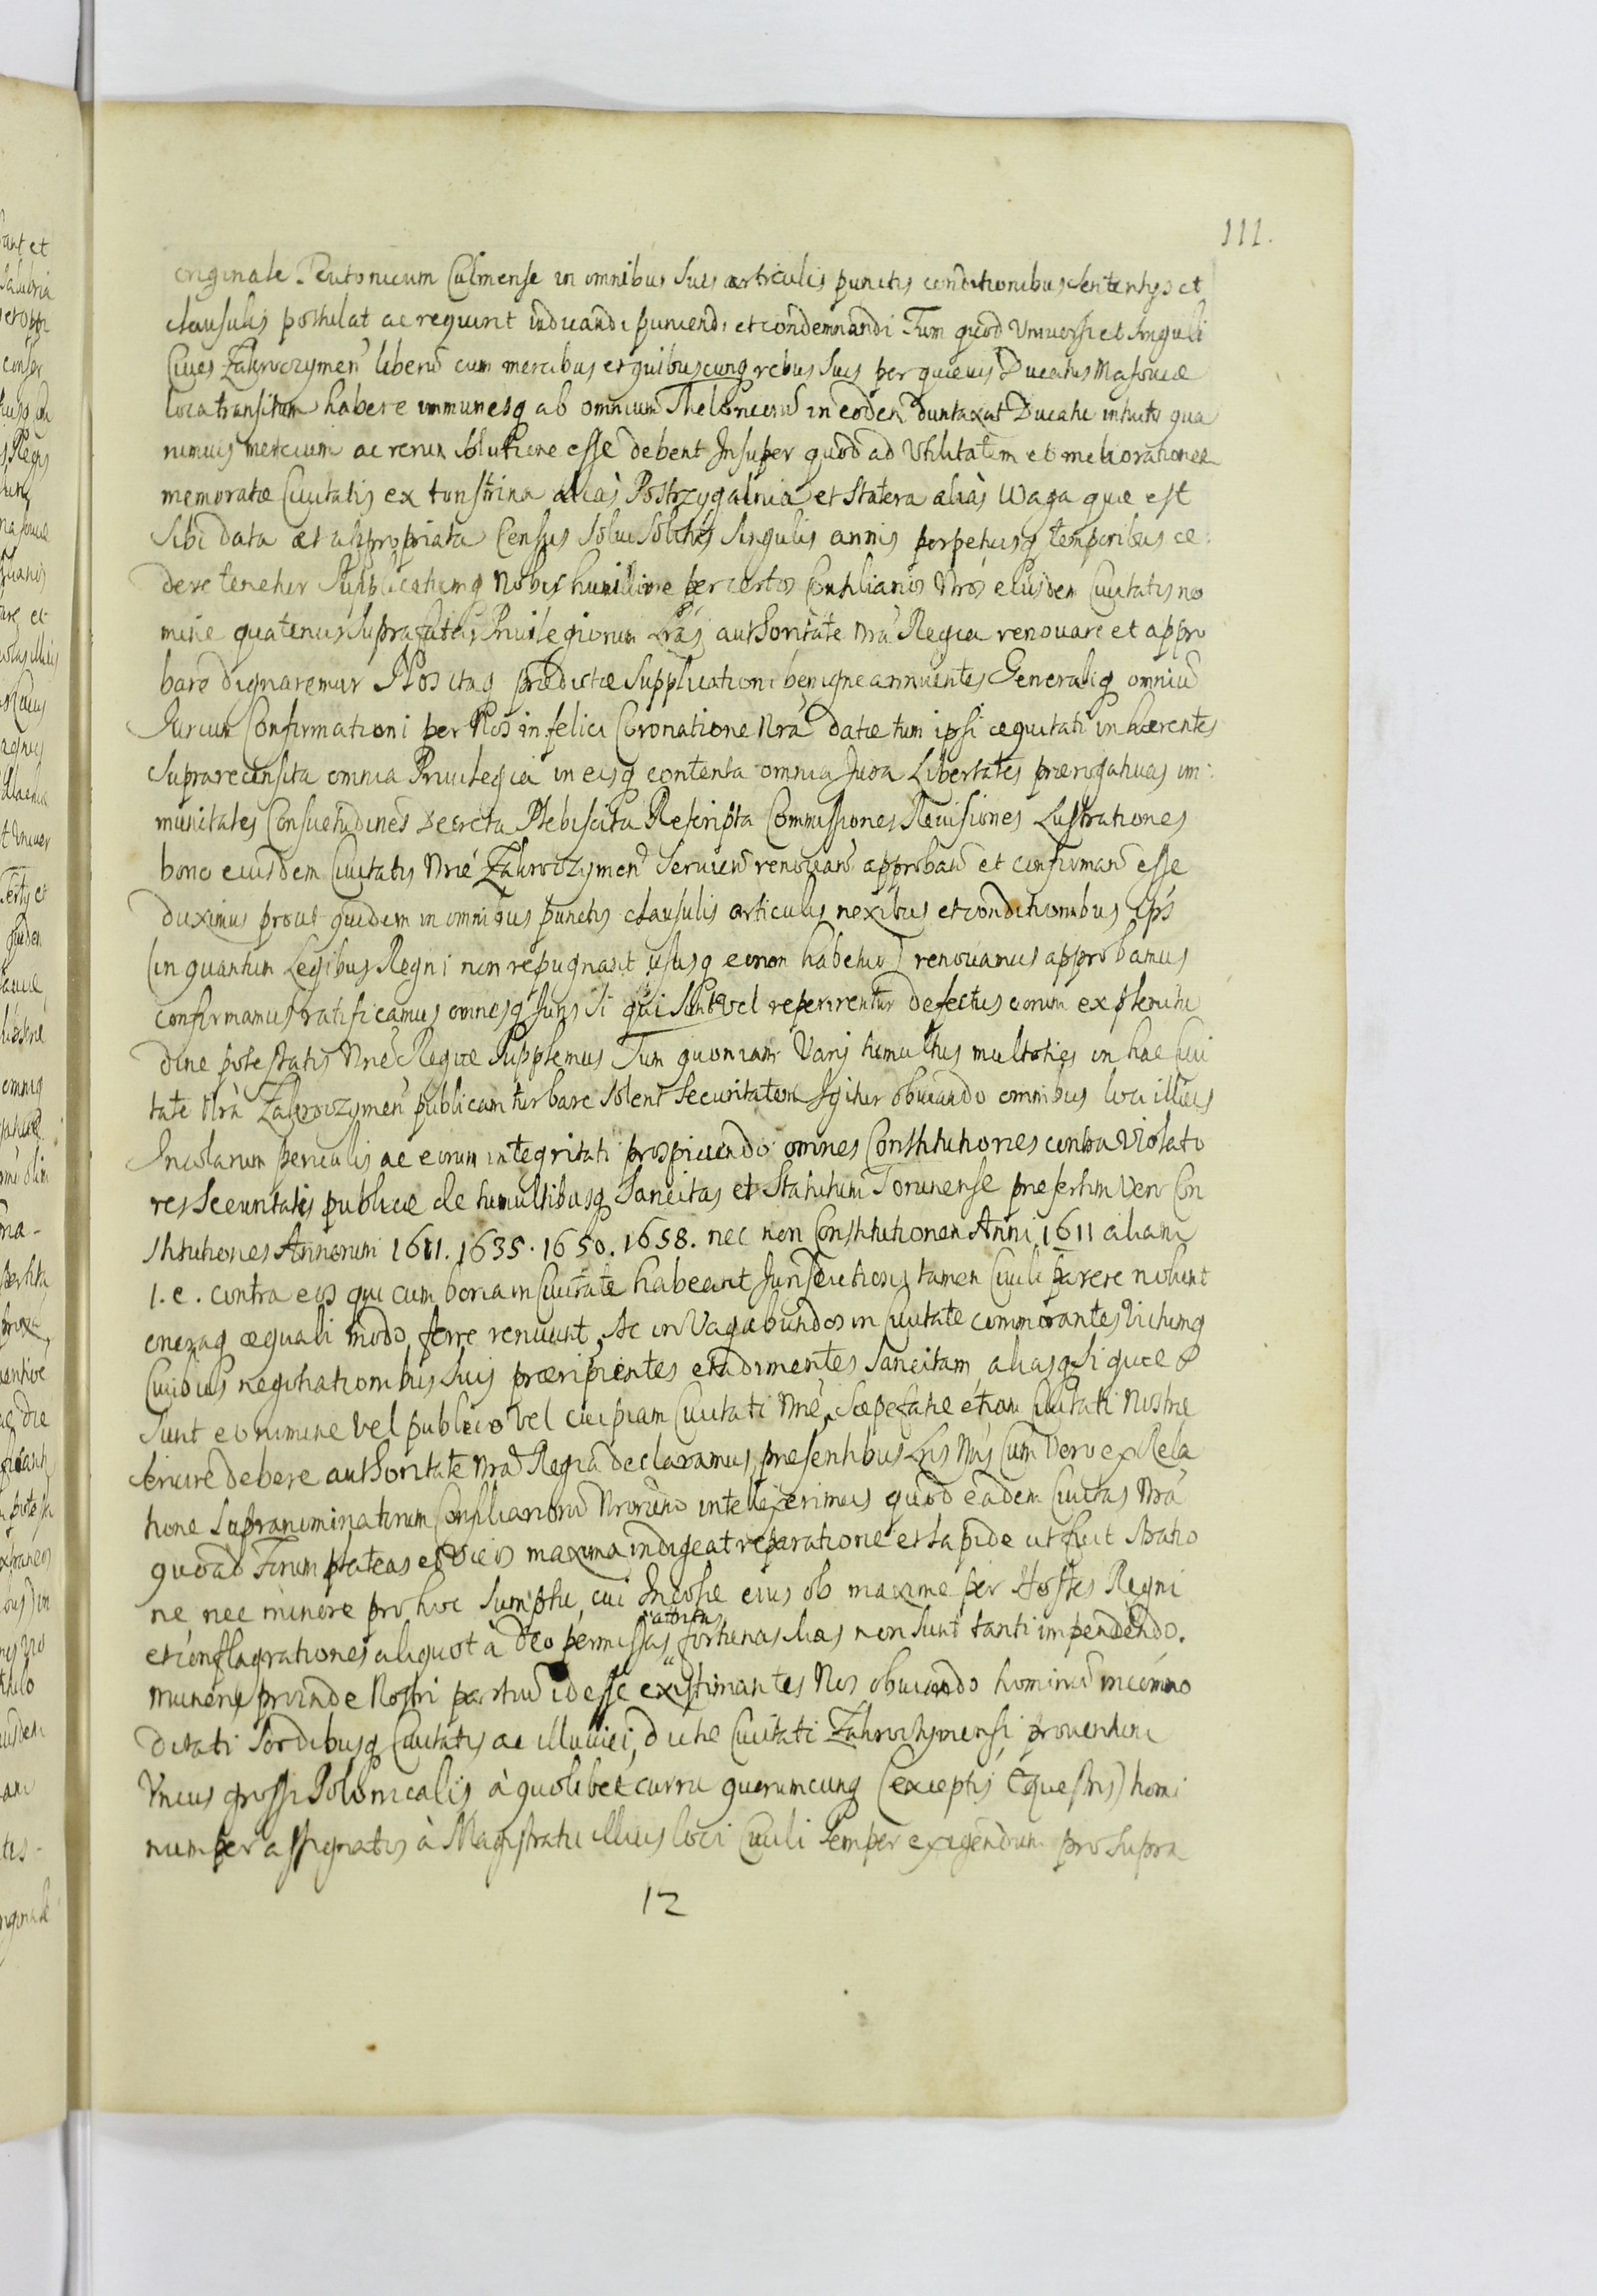 111.
originale Teutonicum Culmense in omnibus suis articulis punctis conditionibus sententys et
clausulis postulat ac requirit iudicandi puniendi et condemnandi Tum quod Vniuersi et singuli
Ciues Zakroczymen liberũ cum mercibus et quibuscunq rebus suis per quæuis Ducatus Masouiæ
loca transitum habere immunesq ab omnium Theloneorũ in eodem duntaxat Ducatu intuitu qua
rumuis mercium ac rerum solutione esse debent Insuper quod ad Vtilitatem et meliorationem
memoratæ Ciuitatis ex tonstrina aliàs Postrzygalnia et Statera aliàs Waga quæ est
sibi data et appropriata Census solui solitus singulis annis perpetuisq temporibus ce:
dere tenetur Supplicatumq Nobis humillime per certos Consiliarios Nros eiusdem Ciuitatis no
mine quatenus suprafatas Priuilegiorum Lras authoritate nra Regia renouare et appro
bare dignaremur Nos itaq prædictæ Supplicationi benigne annuentes Generaliq omniũ
Iurium Confirmationi per Nos in felici Coronatione Nra datæ tum ipsi æquitati inhærentes
suprarecensita omnia Priuilegia in eisq contenta omnia Jura Libertates prærogatiuas im:
munitates Consuetudines Decreta Plebiscita Rescripta Commissiones Reuisiones Lustrationes
bono eiusdem Ciuitatis Nræ Zakroczymen seruien renouand approband et confirmand esse
duximus prout quidem in omnibus punctis clausulis articulis nexibus et conditionibus ips
(in quantum Legibus Regni non repugnant ususq eorum habetur) renouamus approbamus
confirmamus ratificamus omnesq Juris si qui sunt vel reperirentur defectus eorum ex plenitu
dine potestatis Nræ Regiæ supplemus Tum quoniam Varij tumultus multoties in hac Ciui
tate Nra Zakroczymen publicam turbare solent securitatem Igitur obuiando omnibus loci illius
Incolarum periculis ac eorum integritati prospiciendo omnes Constitutiones contra Violato
res securitatis publicæ de tumultibusq sancitas et Statutum Torunense presertim vero Con
stitutiones Annorum 1611. 1635. 1650. 1658. nec non Constitutionem Anni 1611 aliam
1. e. contra eos qui cum bona in Ciuitate habeant Jurisdictioni tamen Ciuili parere nolunt
oneraq æquali modo ferre renuunt, Ac in Vagabundos in Ciuitate commorantes Victumq
Ciuibus negotiationibus suis præripientes et adimentes sancitam, aliasq si quæ
sunt eo nomine vel publico vel cuipiam Ciuitati Nræ, Sæpefatæ etiam Ciuitati Nostræ
seruire debere authoritate Nra Regia declaramus, presentibus Lris Nris Cum vero ex Rela
tione supranominatorum Consiliariorũ Nrorum intellexerimus quod eadem Ciuitas Nra
quoad Forum plateas et Vicos maxima indigeat reparatione et lapide ut fuit stratio
ne, nec minore pro hoc sumptu, cui Incolæ eius ob maxime per Hostes Regni
et conflagrationes aliquot à Deo permissas attritas fortunas suas non sunt tanti impendendo.
Muneris proinde Nostri partiũ id esse existimantes Nos obuiando hominũ incommo
ditati sordibusq Ciuitatis ac illuuiei, dictæ Ciuitati Zakroczymensi prouentum
Vnius grossi Polonicalis à quolibet curru quorumcunq (exceptis Equestris) homi
num per assignatos à Magistratu illius loci Ciuili semper exigendum pro supra
12